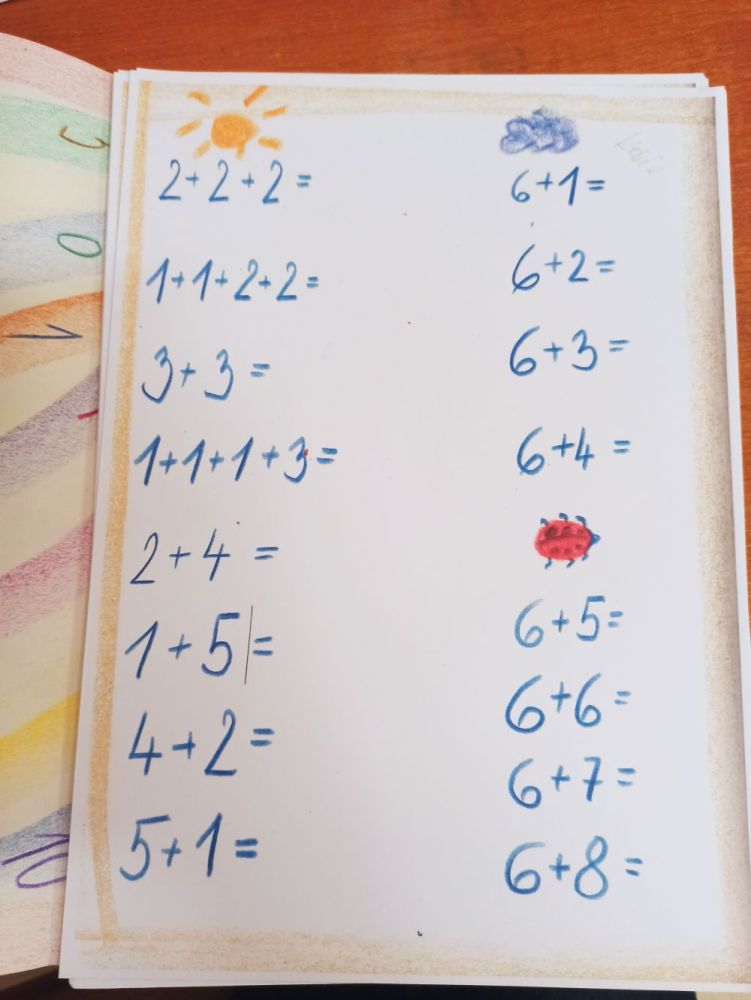 2+2+2=
1+1+2+2=
3+3=
1+1+1+3=
2+4=
1+5|=
4+2=
5+1=
6+1=
6+2=
6+3=
6+4=
6+5=
6+6=
6+7=
6+8=